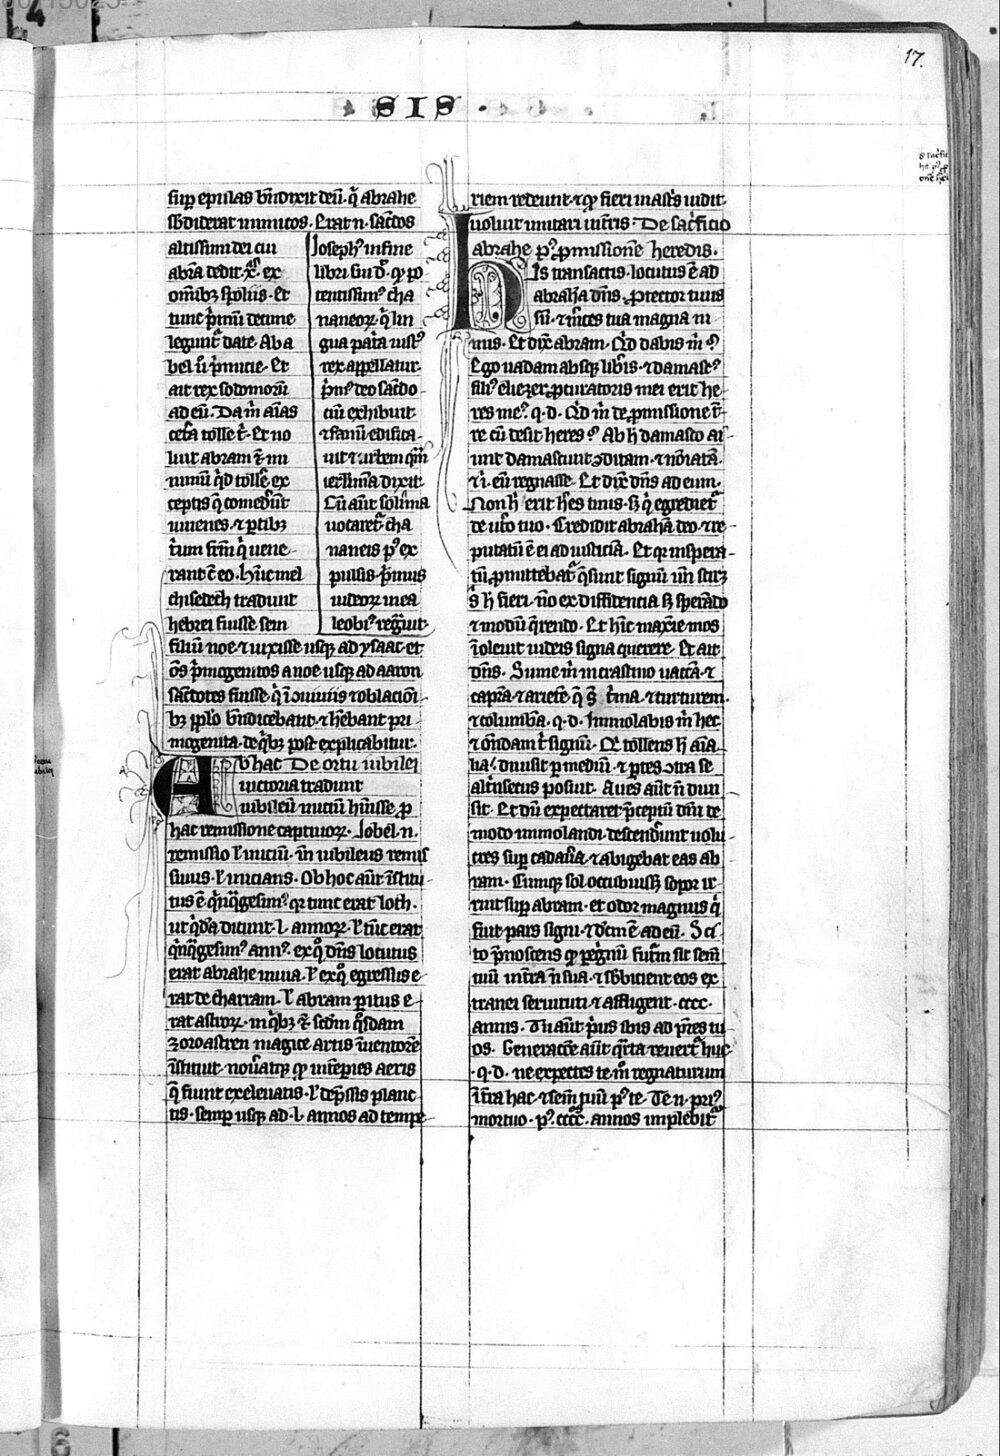 17.
SIS
sup epulas bñdixit deũ. q̃ abrahe
sƀdiderat inimicos. Erat .n. sac̃dos
altissimi dei cui
abrã dedit .x.as ex
om̃ibꝫ spoliis. Et
tunc p̃mũ decime
legunt᷑ date. Aba
bel ũ p̃micie. Et
ait rex sodomorũ
ad eũ. Da m̃ aĩas
cet̃a tolle t̃. Et no
luit abram t̃ mi
nimũ q̃d toll̃e ex
ceptis q̃ comed̃ũt
iuuenes. ⁊ ꝑtibꝫ
t̃um frũm q̃ uene
rant c̃ eo. Hũc mel
chisedech tradunt
hebrei fuisse sem
filiũ noe ⁊ uixisse usqꝫ ad ysaac. et
om̃s p̃mogenitos a noe usqꝫ ad aaron
sac̃dotes fuisse. q̃ ĩ ↄuiuiis ⁊ oblaciõi
bꝫ pp̃lo bñdicebant. ⁊ hẽbant pri
mogenita. de q̃bꝫ post explicabitur.
Joseph᷒ in fine
libri sui d̃r. ꝙ po
tentissim᷒ cha
naneoꝝ. q̃ lin
gua pat̃a iust᷒
rex appellatur.
p̃m᷒ deo sac̃do
ciũ exhibuit
⁊ fanũ edifica
uit ⁊ urbem q̃m̃
ierl̃imã dixit.
Cũ aũt solĩma
uocaret᷑ cha
naneis p᷒ ex
pulsis. p̃mus
iudeoꝝ in ea
leobi᷒ reg̃uit.
Ab hac De ortu iubilei
uictoria tradunt
iubileũ iniciũ hũisse. ꝓ
hac remissione captiuoꝝ. Jobel .n.
remissio l̃ iniciũ. iñ iubileus remis
siuus. l̃ inicians. Ob hoc aũt ĩstitu
tus ẽ q̃nq̃gesim᷒. qr tunc erat loth.
ut q̃dã dicunt .l. annoꝝ. l̃ tũc erat
q̃nq̃gesim᷒ ann᷒. ex q̊ dñs locutus
erat abrahe in uia. l̃ ex q̊ egressus e
rat de charram. l̃ abram ꝑitus e
rat astroꝝ. in q̃bꝫ ⁊ sc̃dm q̊sdam
zoroastren magice artis ĩuentorẽ
ĩstituit. nou̾atqꝫ ꝙ intẽperies aeris
q̃ fiunt ex eleuatis. l̃ dep̃ssis plane
tis. semp usqꝫ ad .l. annos ad tempe
riem redeunt. ⁊ ꝙ fieri in ast̃s uidit.
uoluit imitari in t̃ris. De sac̃ficio
abrahe p᷒ ꝓmissionẽ heredis.
His transactis. locutus ẽ ad
abrahã dñs. ꝓtector tuus
sũ. ⁊ m̃ces tua magna ni
mis. Et dix̃ abram. Q̃d dabis m̃?
Ego uadam absqꝫ lib̃is. ⁊ damasc᷒
fili᷒ eliezer ꝓcuratoris mei erit he
res me᷒. q. d. Q̃d m̃ de ꝓmissione t̃
re cũ desit heres? Ab h̾ damasco ai
unt damascum ↄditam. ⁊ nõiatã.
⁊ i. eũ regnasse. Et dix̃ dñs ad eum.
Non h̾ erit h̃es tuus. s̾ q̃ egrediet᷑
de ut̃o tuo. Credidit abrahã deo. ⁊ re
putatũ ẽ ei ad iusticiã. Et qr insꝑa
tũ ꝓmittebat᷑ q̃siuit signũ uñ sciret
s̾ h̾ fieri. nõ ex diffidentia s̾ sperãdo
⁊ modũ q̃rendo. Et hĩc maxime mos
ĩoleuit iudeis signa querere. Et ait
dñs. Sume m̃ in crastino uaccã. ⁊
caprã. ⁊ arietẽ. q̃ s̾ t̃ima. ⁊ turturem.
⁊ columbã. q. d. Immolabis m̃ hec
⁊ oñdam t̃ signũ. Qr tollens h̾ aĩa
lia. diuisit ꝑ mediũ. ⁊ ꝑtes ↄtra se
alt̃isecus posuit. Aues aũt ñ diui
sit. Et dũ expectaret p̃ceptũ dñi de
modo immolandi. descendr̃unt uolu
cres sup cadauĩa. ⁊ abigebat eas ab
ram. Cumqꝫ sol occubuissꝫ sopor ir
ruit sup abram. et odor magnus q̃
fuit pars signi. ⁊ dc̃m ẽ ad eũ. Sci
to p̃noscens ꝙ peg̃nũ futur̃m sit sem̃
tuũ in t̃ra ñ sua. ⁊ sƀicient eos ex
tranei seruituti. ⁊ affligent .cccc.
annis. Tu aũt p̃us ibis ad pr̃es tu
os. Generacõe aũt q̃rta reuert̃r huc
.q. d. ne expectes te m̊ regnaturum
ĩ t̃ra hac. ⁊ sem̃ tuũ p᷒ te. Te .n. pri᷒
mortuo. p᷒ .cccc. annos implebit᷑